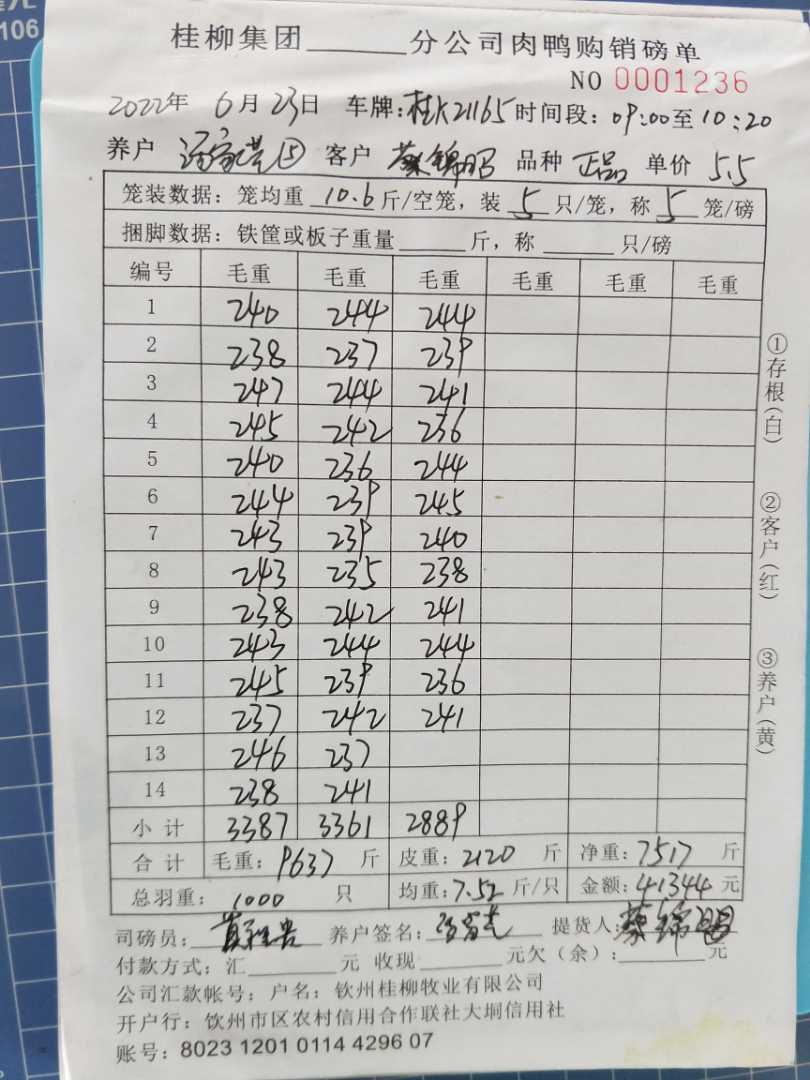 106
桂柳集团______分公司肉鸭购销磅单
NO 0001236
2022年 6月 23日 车牌:桂K21165 时间段:09:00至10:20
养户 客户 蔡锦昭 品种 正品 单价 5.5
笼装数据:笼均重 10.6 斤/空笼,装 5 只/笼,称 5 笼/磅
捆脚数据:铁筐或板子重量______斤,称______只/磅
编号 毛重 毛重 毛重 毛重 毛重 毛重
1 240 244 244
2 238 237 239
3 247 244 241
4 245 242 236
5 240 236 244
6 244 239 245
7 243 239 240
8 243 235 238
9 238 242 241
10 243 244 244
11 245 239 236
12 237 242 241
13 246 237
14 238 241
小计 3387 3361 2889
合计 毛重:9637 斤 皮重:2120 斤 净重:7517 斤
总羽重: 1000 只 均重:7.52 斤/只 金额:41344 元
司磅员: 养户签名: 提货人:蔡锦昭
付款方式:汇______元 收现______元欠(余):______元
公司汇款帐号;户名:钦州桂柳牧业有限公司
开户行:饮州市区农村信用合作联社大垌信用社
账号:8023 1201 0114 4296 07
①存根(白)
②客户(红)
③养户(黄)